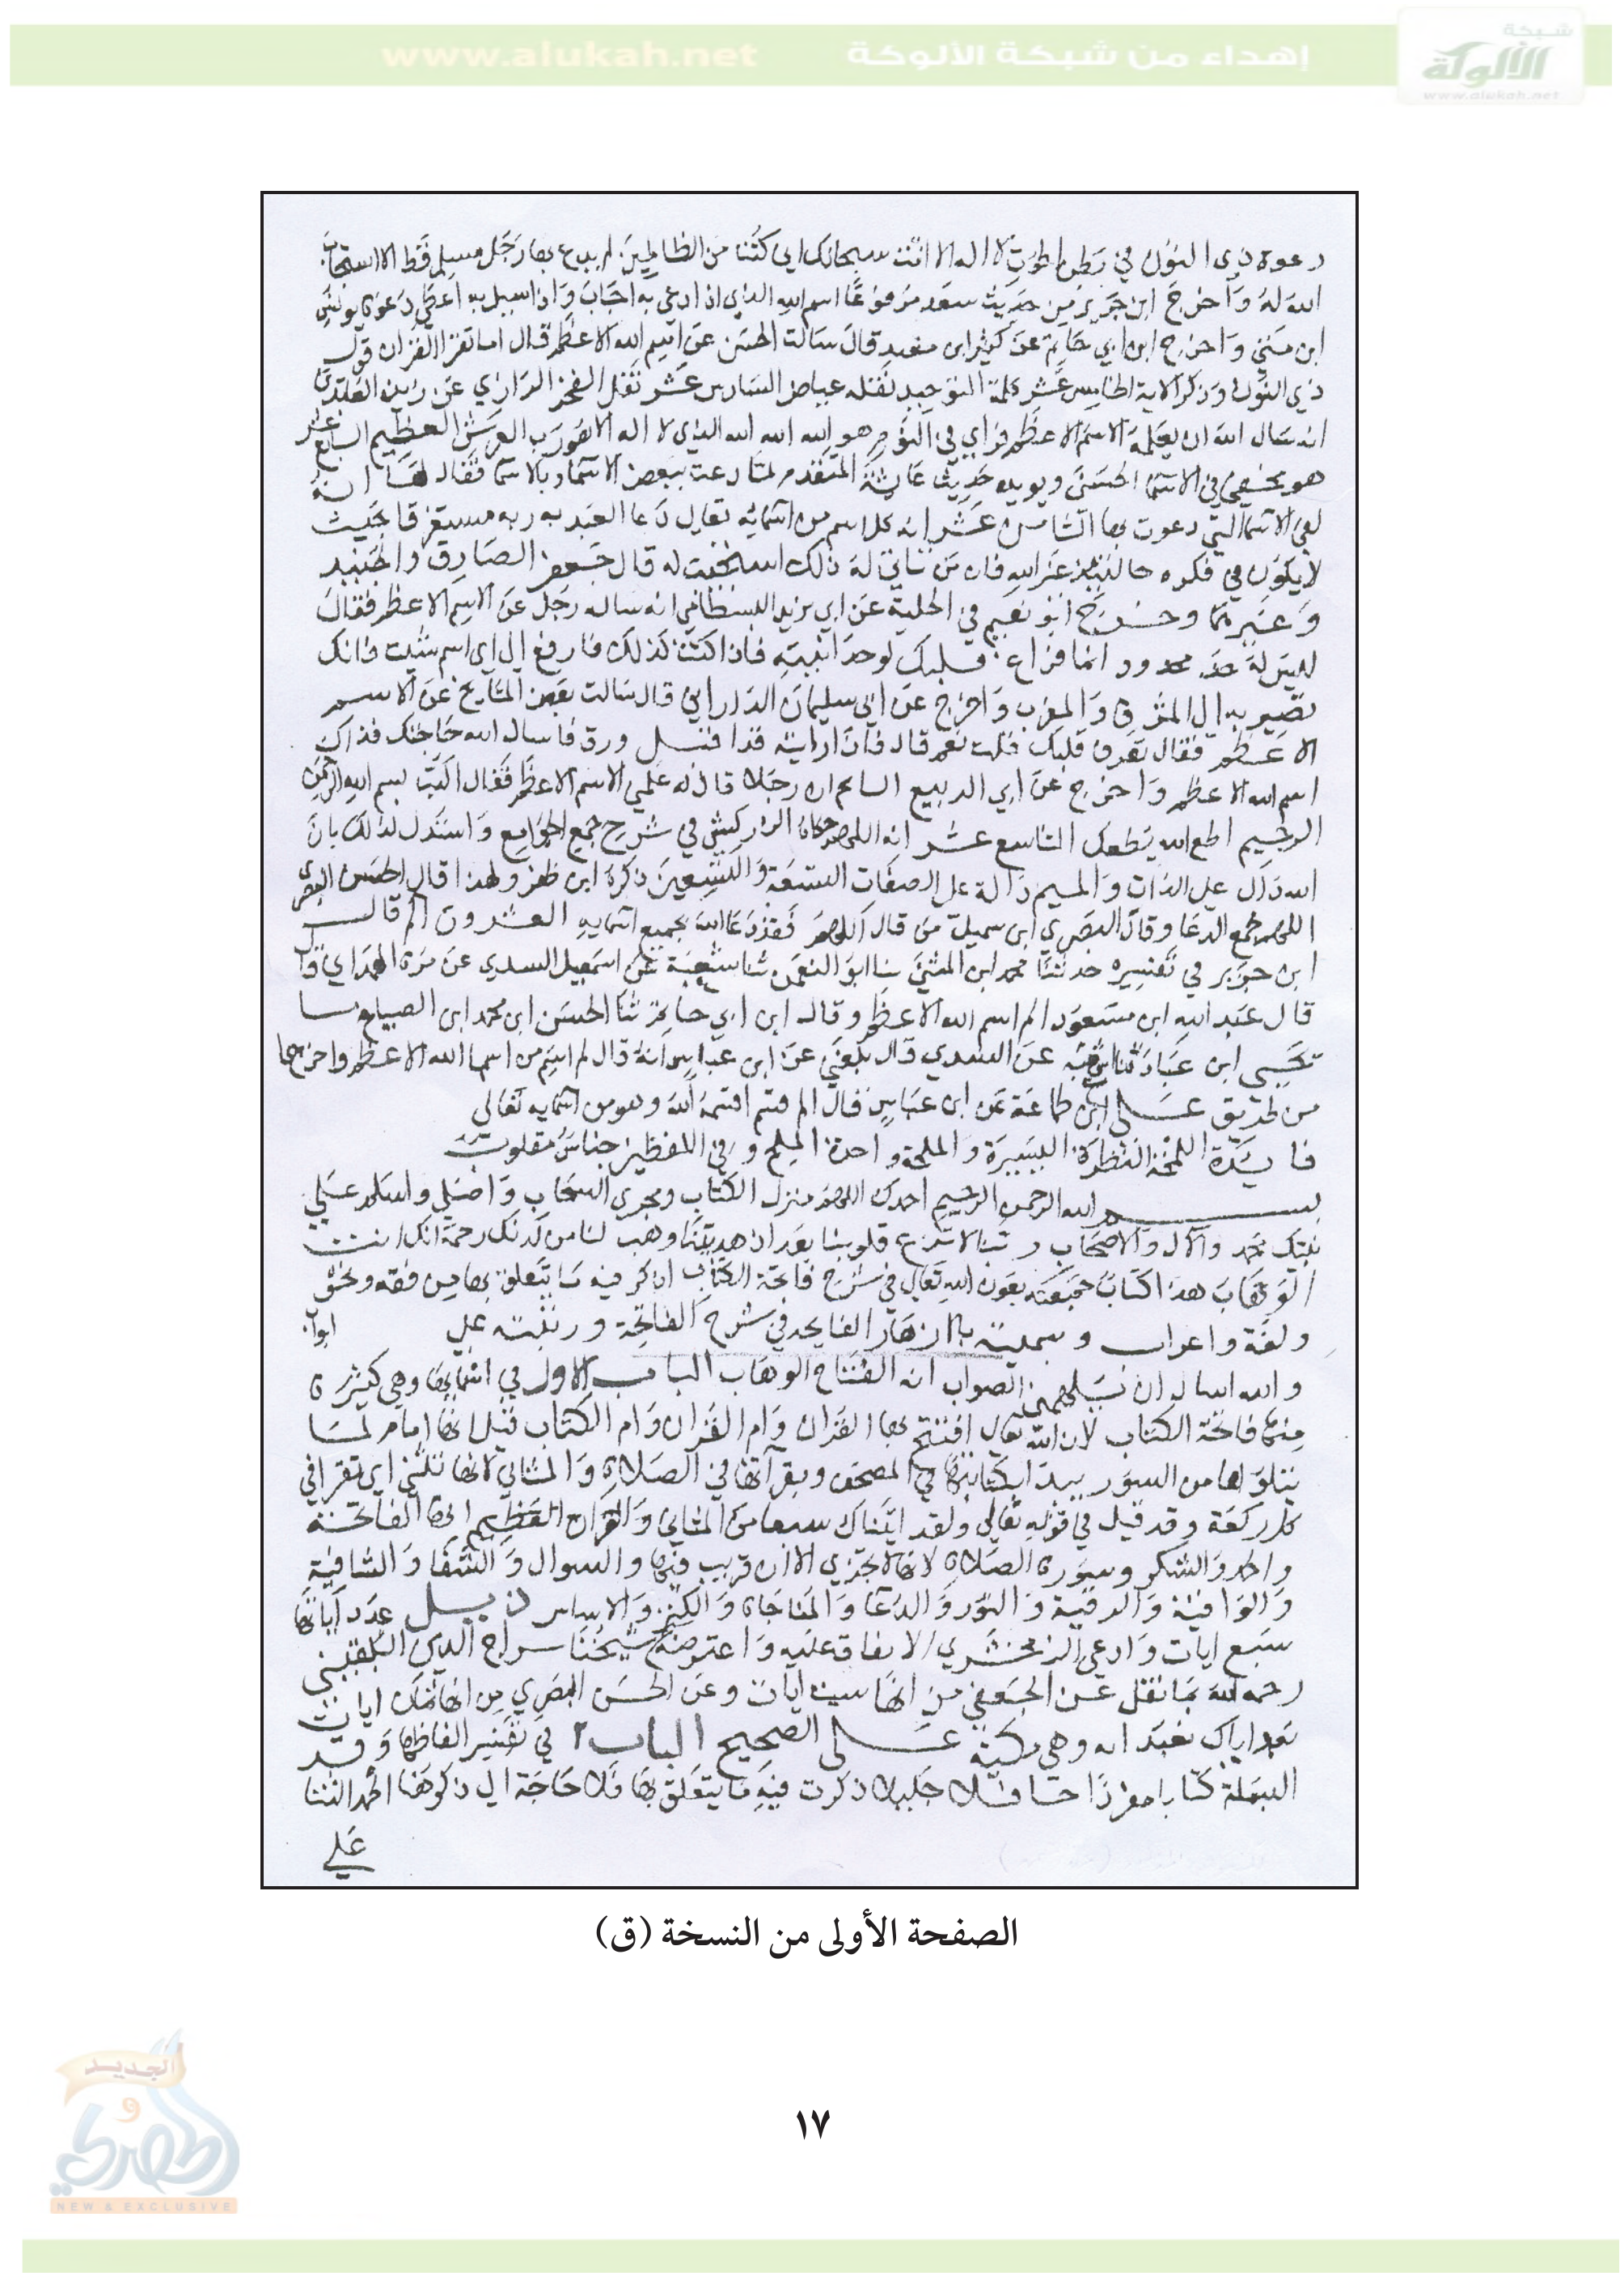 www.alukah.net إهداء من شبكة الألوكة
شبكة
الألوكة
www.alukah.net
دعوة ذي النون في بطن الحوت لا اله الا انت سبحانك اني كنت من الظالمين لم يدع بها رجل مسلم قط الا استجاب
الله له واخرج ابن جرير من حديث سعد مرفوعا اسم الله الذي اذا دعي به اجاب واذا سيل به اعطي دعوة يونس
ابن متي واخرج ابن ابي حاتم عن كثير ابن معبد قال سالت الحسن عن اسم الله الاعظم قال اما تقرا القران قول
ذي النون وذكر الاية الخامس عشر كلمة التوحيد نقله عياض السادس عشر نقل الفخر الرازي عن زين العابدين
انه سال الله ان يعلمه الاسم الاعظم فراي في النوم هو الله الله الله الذي لا اله الا هو رب العرش العظيم السابع عشر
هو مخفي في الاسما الحسني ويويده حديث عايشة المتقدم لما دعت ببعض الاسما وبالاسما فقال لها انه
لفي الاسما التي دعوت بها الثامن عشر انه كل اسم من اسمايه تعالي دعا العبد به ربه مستغرقا بحيث
لا يكون في فكره حالتيذ غير الله فان من تاتي له ذلك استجيب له قال جعفر الصادق والجنيد
وغيرهما وخرج ابو نعيم في الحلية عن ابي يزيد البسطامي انه ساله رجل عن الاسم الاعظم فقال
ليس له حد محدود انما هو فراغ قلبك لوحدانيته فاذا كنت كذلك فارفع الي اي اسم شيت فانك
تصير به الي المشرق والمغرب واخرج عن ابي سليمان الداراني قال سالت بعض المشايخ عن الاسم
الاعظم فقال تعرف قلبك قلت نعم قال فاذا رايته قد اقبل ورق فاسال الله حاجتك فذاك
اسم الله الاعظم واخرج عن ابي الربيع السايح ان رجلا قال له علمني الاسم الاعظم فقال اكتب بسم الله الرحمن
الرحيم اطع الله يطعك التاسع عشر انه اللهم حكاه الزركشي في شرح جمع الجوامع واستدل لذلك بان
الله دال علي الذات والميم دالة علي الصفات التسعة والتسعين ذكره ابن ظفر ولهذا قال الحسن البصري
اللهم مجمع الدعا وقال النضر ابن شميل من قال اللهم فقد دعا الله بجميع اسمايه العشرون الم قال
ابن جرير في تفسيره حدثنا محمد ابن المثني ثنا ابو النعمن ثنا شعبة عن اسمعيل السدي عن مرة الهمداني قال
قال عبد الله ابن مسعود الم اسم الله الاعظم وقال ابن ابي حاتم ثنا الحسن ابن محمد ابن الصباح ثنا
يحيي ابن عباد ثنا شعبة عن السدي قال بلغني عن ابن عباس انه قال الم اسم من اسما الله الاعظم واخرجا
من طريق علي ابن طلحة عن ابن عباس قال الم قسم اقسمه الله وهو من اسمايه تعالي
فايدة اللمحة النظرة اليسيرة والملحة واحدة الملح وفي اللفظين جناس مقلوب
بسم الله الرحمن الرحيم احمدك اللهم منزل الكتاب ومجري السحاب واصلي واسلم علي
نبيك محمد والال والاصحاب ربنا لا تزغ قلوبنا بعد اذ هديتنا وهب لنا من لدنك رحمة انك انت
الوهاب هذا كتاب جمعته بعون الله تعالي في شرح فاتحة الكتاب اذكر فيه ما يتعلق بها من فقه ونحو
ولغة واعراب وسميته بالازهار الفايحه في شرح الفاتحة ورتبته علي ابواب
والله اسال ان يلهمني الصواب انه الفتاح الوهاب الباب الاول في اسمايها وهي كثيرة
منها فاتحة الكتاب لان الله تعالي افتتح بها القران وام القران وام الكتاب قيل انها امام لما
يتلوها من السور يبدا بكتابتها في المصحف وبقراتها في الصلاة والمثاني لانها تثني اي تقرا في
كل ركعة وقد قيل في قوله تعالي ولقد اتيناك سبعا من المثاني والقران العظيم انها الفاتحة
والحمد والشكر وسورة الصلاة لانها لا تجزي الا بها والسوال والشفا والشافية
والوافية والرقية والنور والدعا والمناجاة والكنز والاساس ذيل عدد اياتها
سبع ايات وادعي الزمخشري الاتفاق عليه واعترضه شيخنا سراج الدين البلقيني
رحمه الله بما نقل عن الجعفي من انها ست ايات وعن الحسن البصري من انها ثمان ايات
بعد اياك نعبد اية وهي مكية علي الصحيح الباب ٢ في تفسير الفاظها وقد
البسملة كتابا مفردا حافلا جليلا ذكرت فيه ما يتعلق بها فلا حاجة الي ذكرها هنا الحمد الثنا
علي
الصفحة الأولى من النسخة (ق)
١٧
الجديد
و
الحصري
NEW & EXCLUSIVE